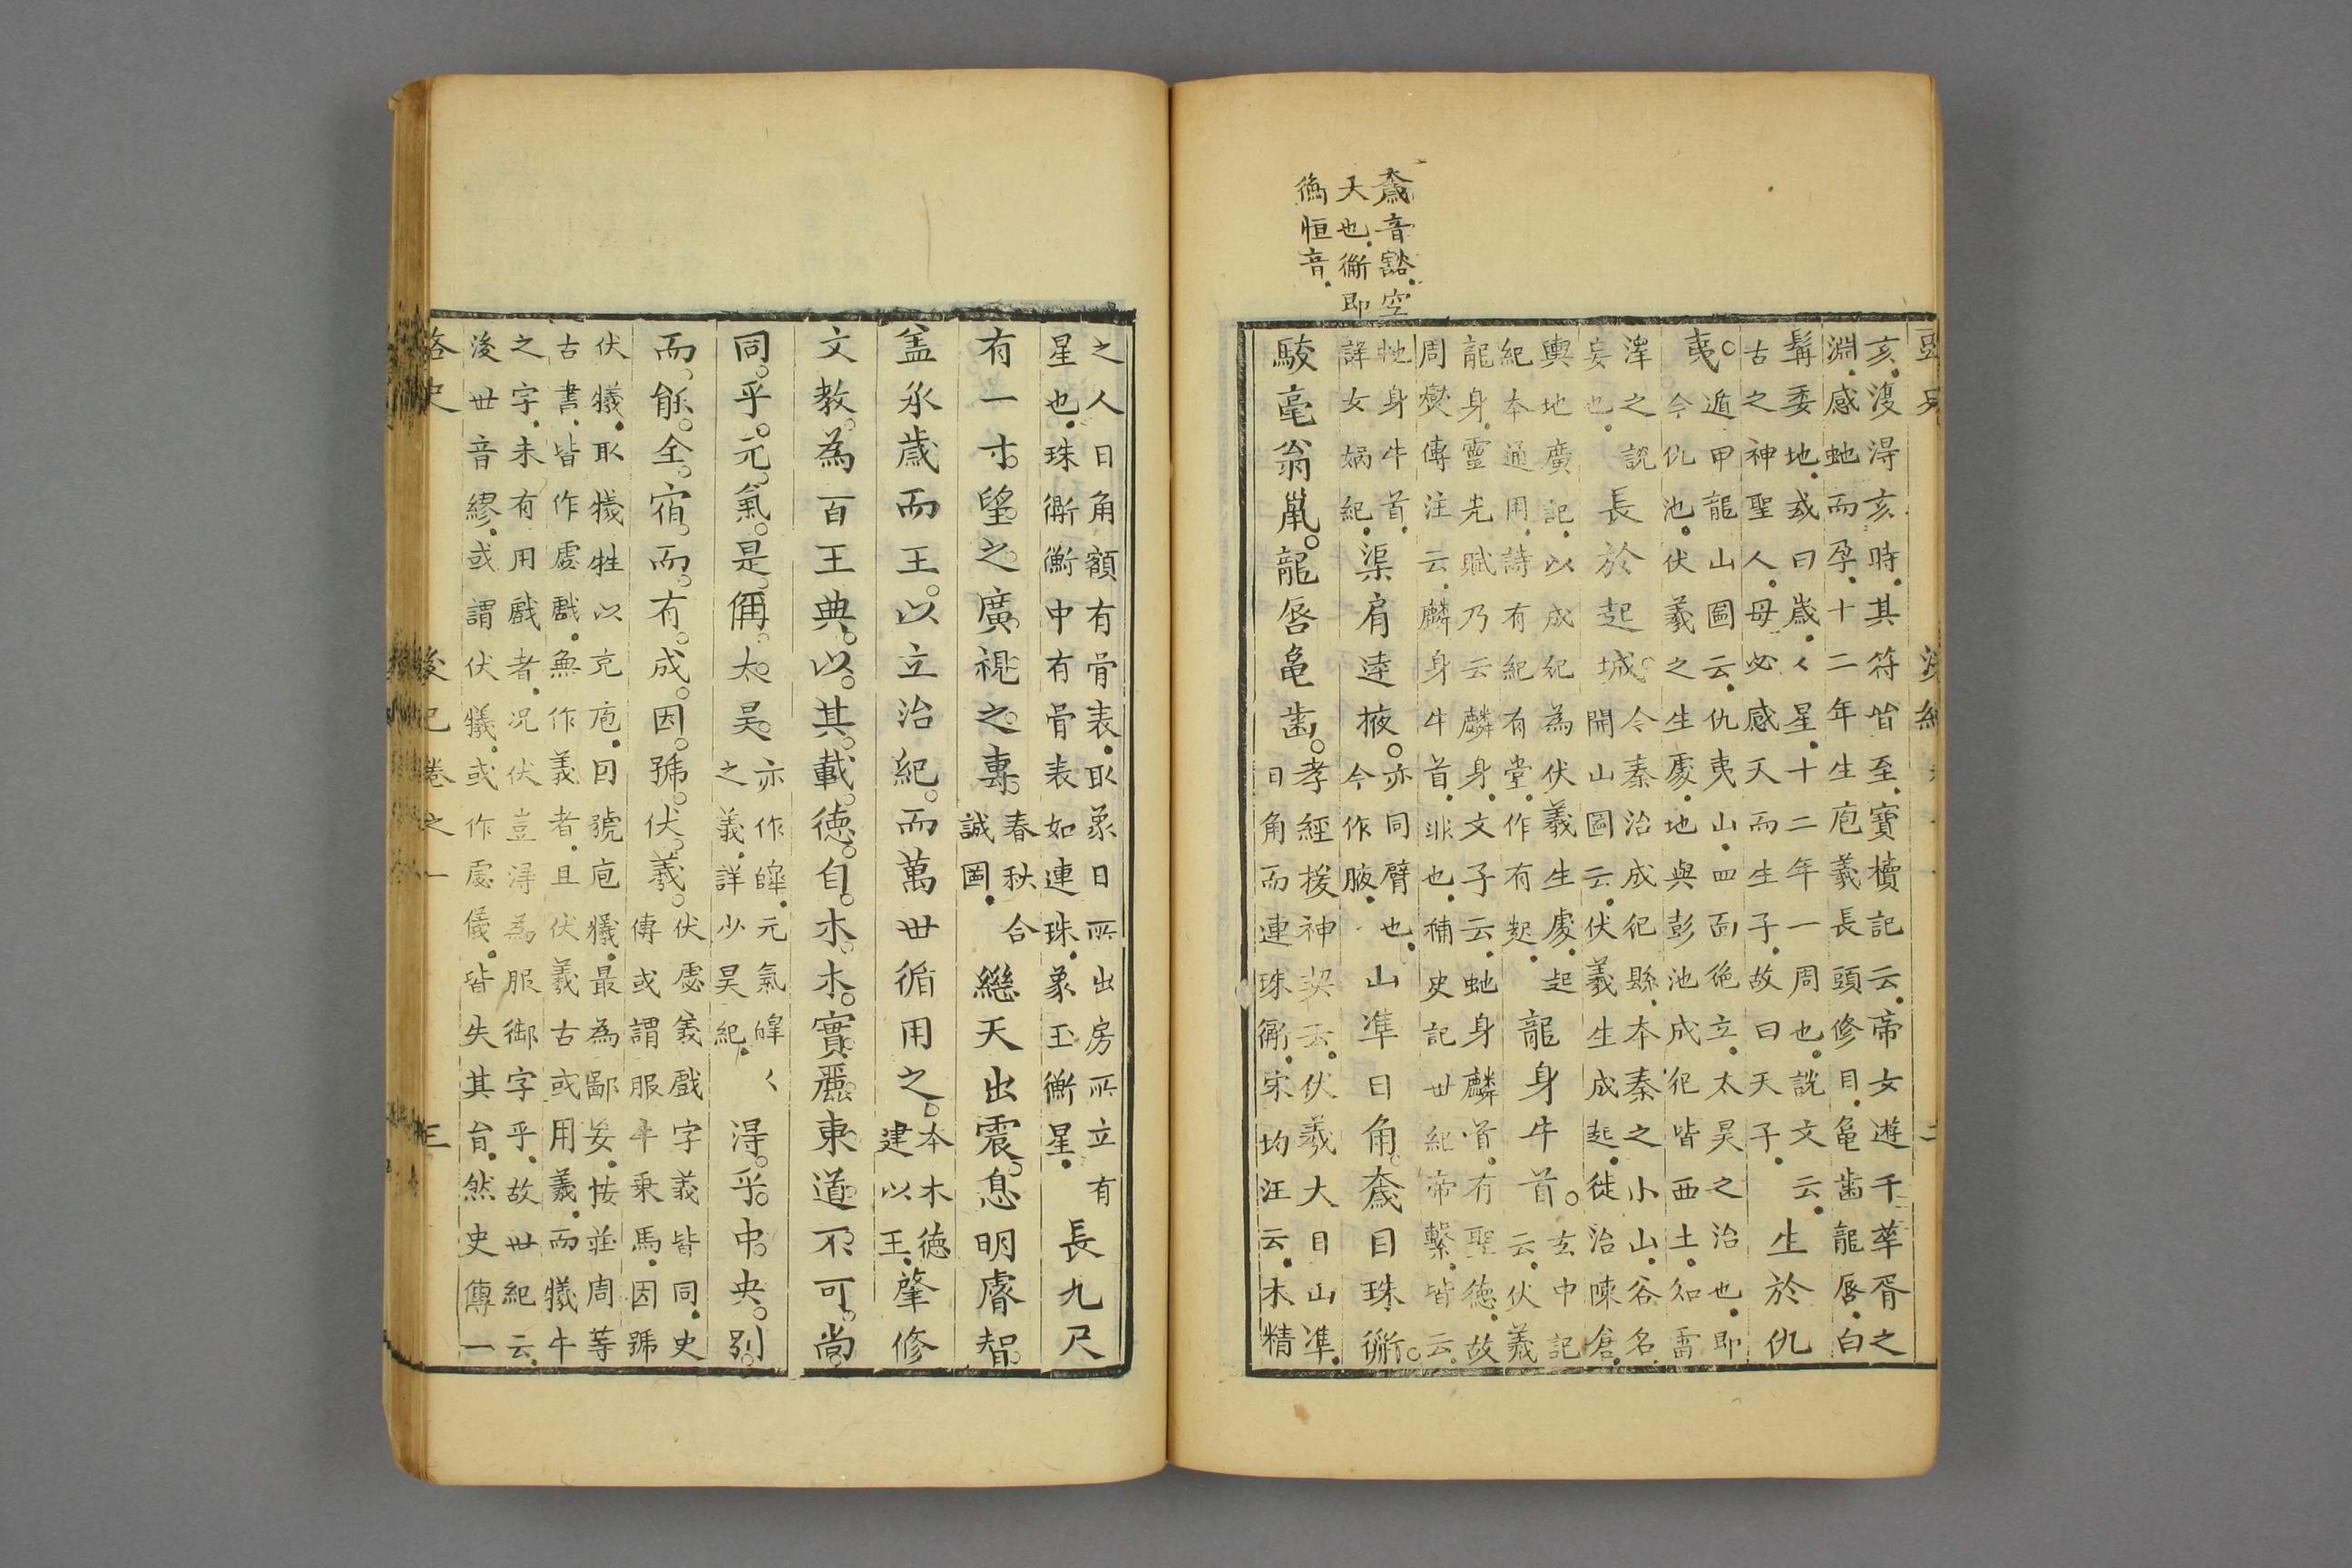 奯音豁空
大也衡即
衡恒音
亥復得亥時其符皆至寶櫝記云帝女遊千華胥之
淵感虵而孕十二年生庖羲長頭修目龜齒龍唇白
髯委地或曰歲々星十二年一周也說文云
古之神聖人母必感天而生子故曰天子
生於仇
夷
遁甲龍山圖云仇夷山四面絶立太昊之治也即
今仇池伏羲之生處地與彭池成紀皆西土知雷
澤之說
妄也
長於起城
今秦治成紀縣本秦之小山谷名
開山圖云伏羲生成起徙治陳倉
輿地廣記以成紀為伏羲生處起
紀本通用詩有紀有堂作有起
龍身牛首
玄中記
云伏羲
龍身靈光賦乃云麟身文子云虵身麟首有聖德故
周爕傳注云麟身牛首非也補史記世紀帝繫皆云
虵身牛首
詳女媧紀
渠肩逹掖
亦同臂也
今作腋
山準日角奯目珠衡
駿毫翁鬣龍唇龜齒
孝經援神契云伏羲大目山準
日角而連珠衡宋均注云木精
之人日角額有骨表取象日所出房所立有
星也珠衡衡中有骨表如連珠象玉衡星
長九尺
有一寸望之廣視之專
春秋合
誠圖
繼天出震息明睿智
盖承歲而王以立治紀而萬世循用之
本木德
建以王
肇修
文教為百王典以其載德自木木實麗東道不可尚
同乎元氣是偁太昊
亦作皥元氣皥々
之義詳少昊紀
得乎中央别
而能全宿而有成因號伏羲
伏虙羲戲字義皆同史
傳或謂服牛乘馬因號
伏犧取犧牲以充庖因號庖犧最為鄙妄按莊周等
古書皆作虙戲無作義者且伏羲古或用羲而犧牛
之字未有用戲者况伏豈得為服御字乎故世紀云
後世音繆或謂伏犧或作虙儀皆失其旨然史傳一
路史 後紀卷之一 三